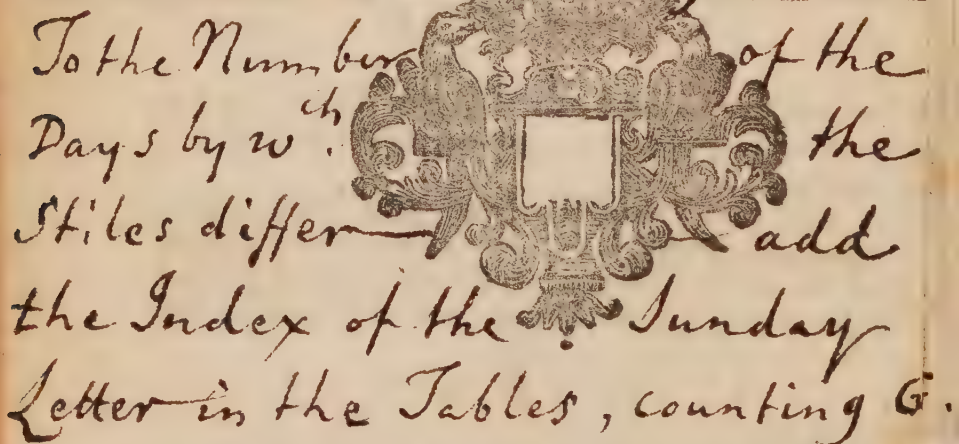 To the Number of the
Days by wch. the
Stiles differ add
the Index of the Sunday
Letter in the Tables, counting G.